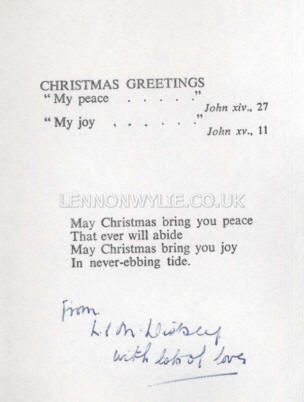 CHRISTMAS GREETINGS
"My peace . . . . ."
John xiv., 27
"My joy . . . . . ."
John xv., 11
LENNONWYLIE.CO.UK
May Christmas bring you peace
That ever will abide
May Christmas bring you joy
In never-ebbing tide.
From
with lots of love